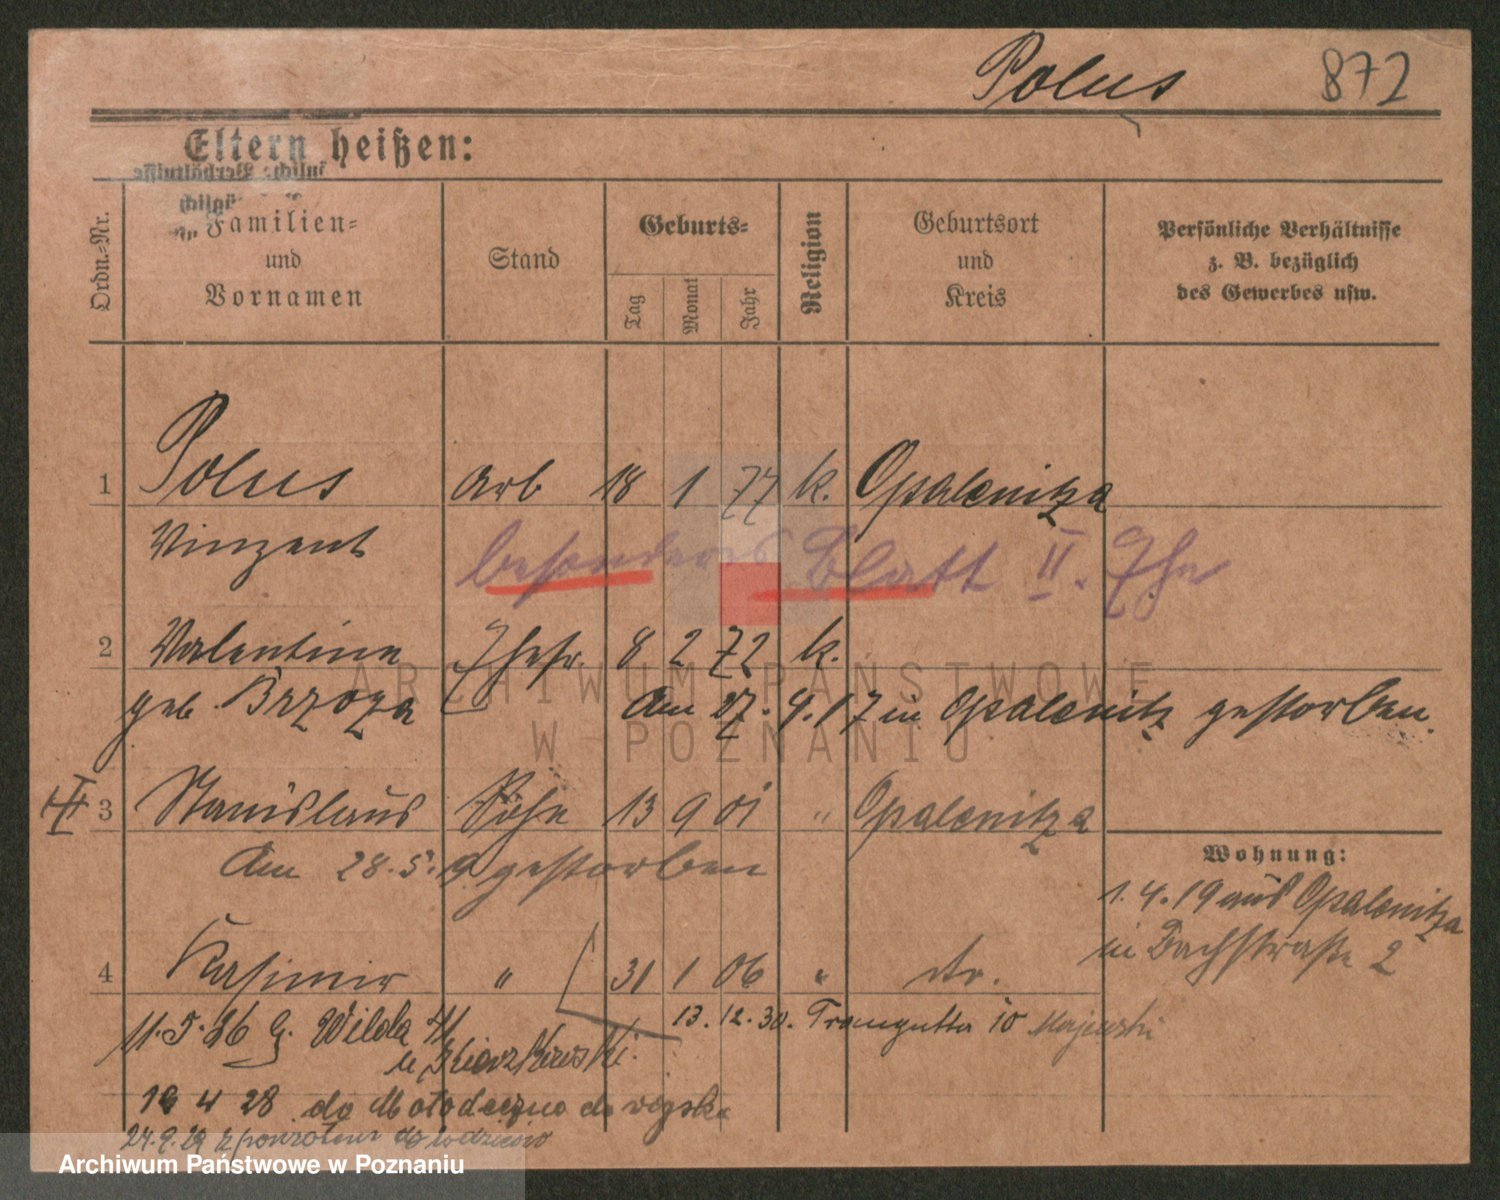 Polus 872
Eltern heißen:
Ordn.-Nr.
Familien-
und
Vornamen
Stand
Geburts-
Tag
Monat
Jahr
Religion
Geburtsort
und
Kreis
Persönliche Verhältnisse
z. B. bezüglich
des Gewerbes usw.
1 Polus Arb 18 1 77 k. Opalenitza
Vinzent
besonderes Blatt II. Ehe
2 Valentine Ehefr. 8 2 72 k.
geb. Brzoza Am 27. 9. 17 in Opalenitz gestorben.
3 Stanislaus Sohn 13 9 01 " Opalenitza
Am 28. 5. 19 gestorben
Wohnung:
1. 4. 19 aus Opalenitza
in Bachstraße 2
4 Kasimir " 31 1 06 " do.
11. 5. 26 G. Wilda
13. 12. 30. Traugutta 10 Majewski
u
19 4 28 do Mołodeczno do wojska
24. 9. 29 z powrotem do
ARCHIWUM PAŃSTWOWE
W POZNANIU
Archiwum Państwowe w Poznaniu